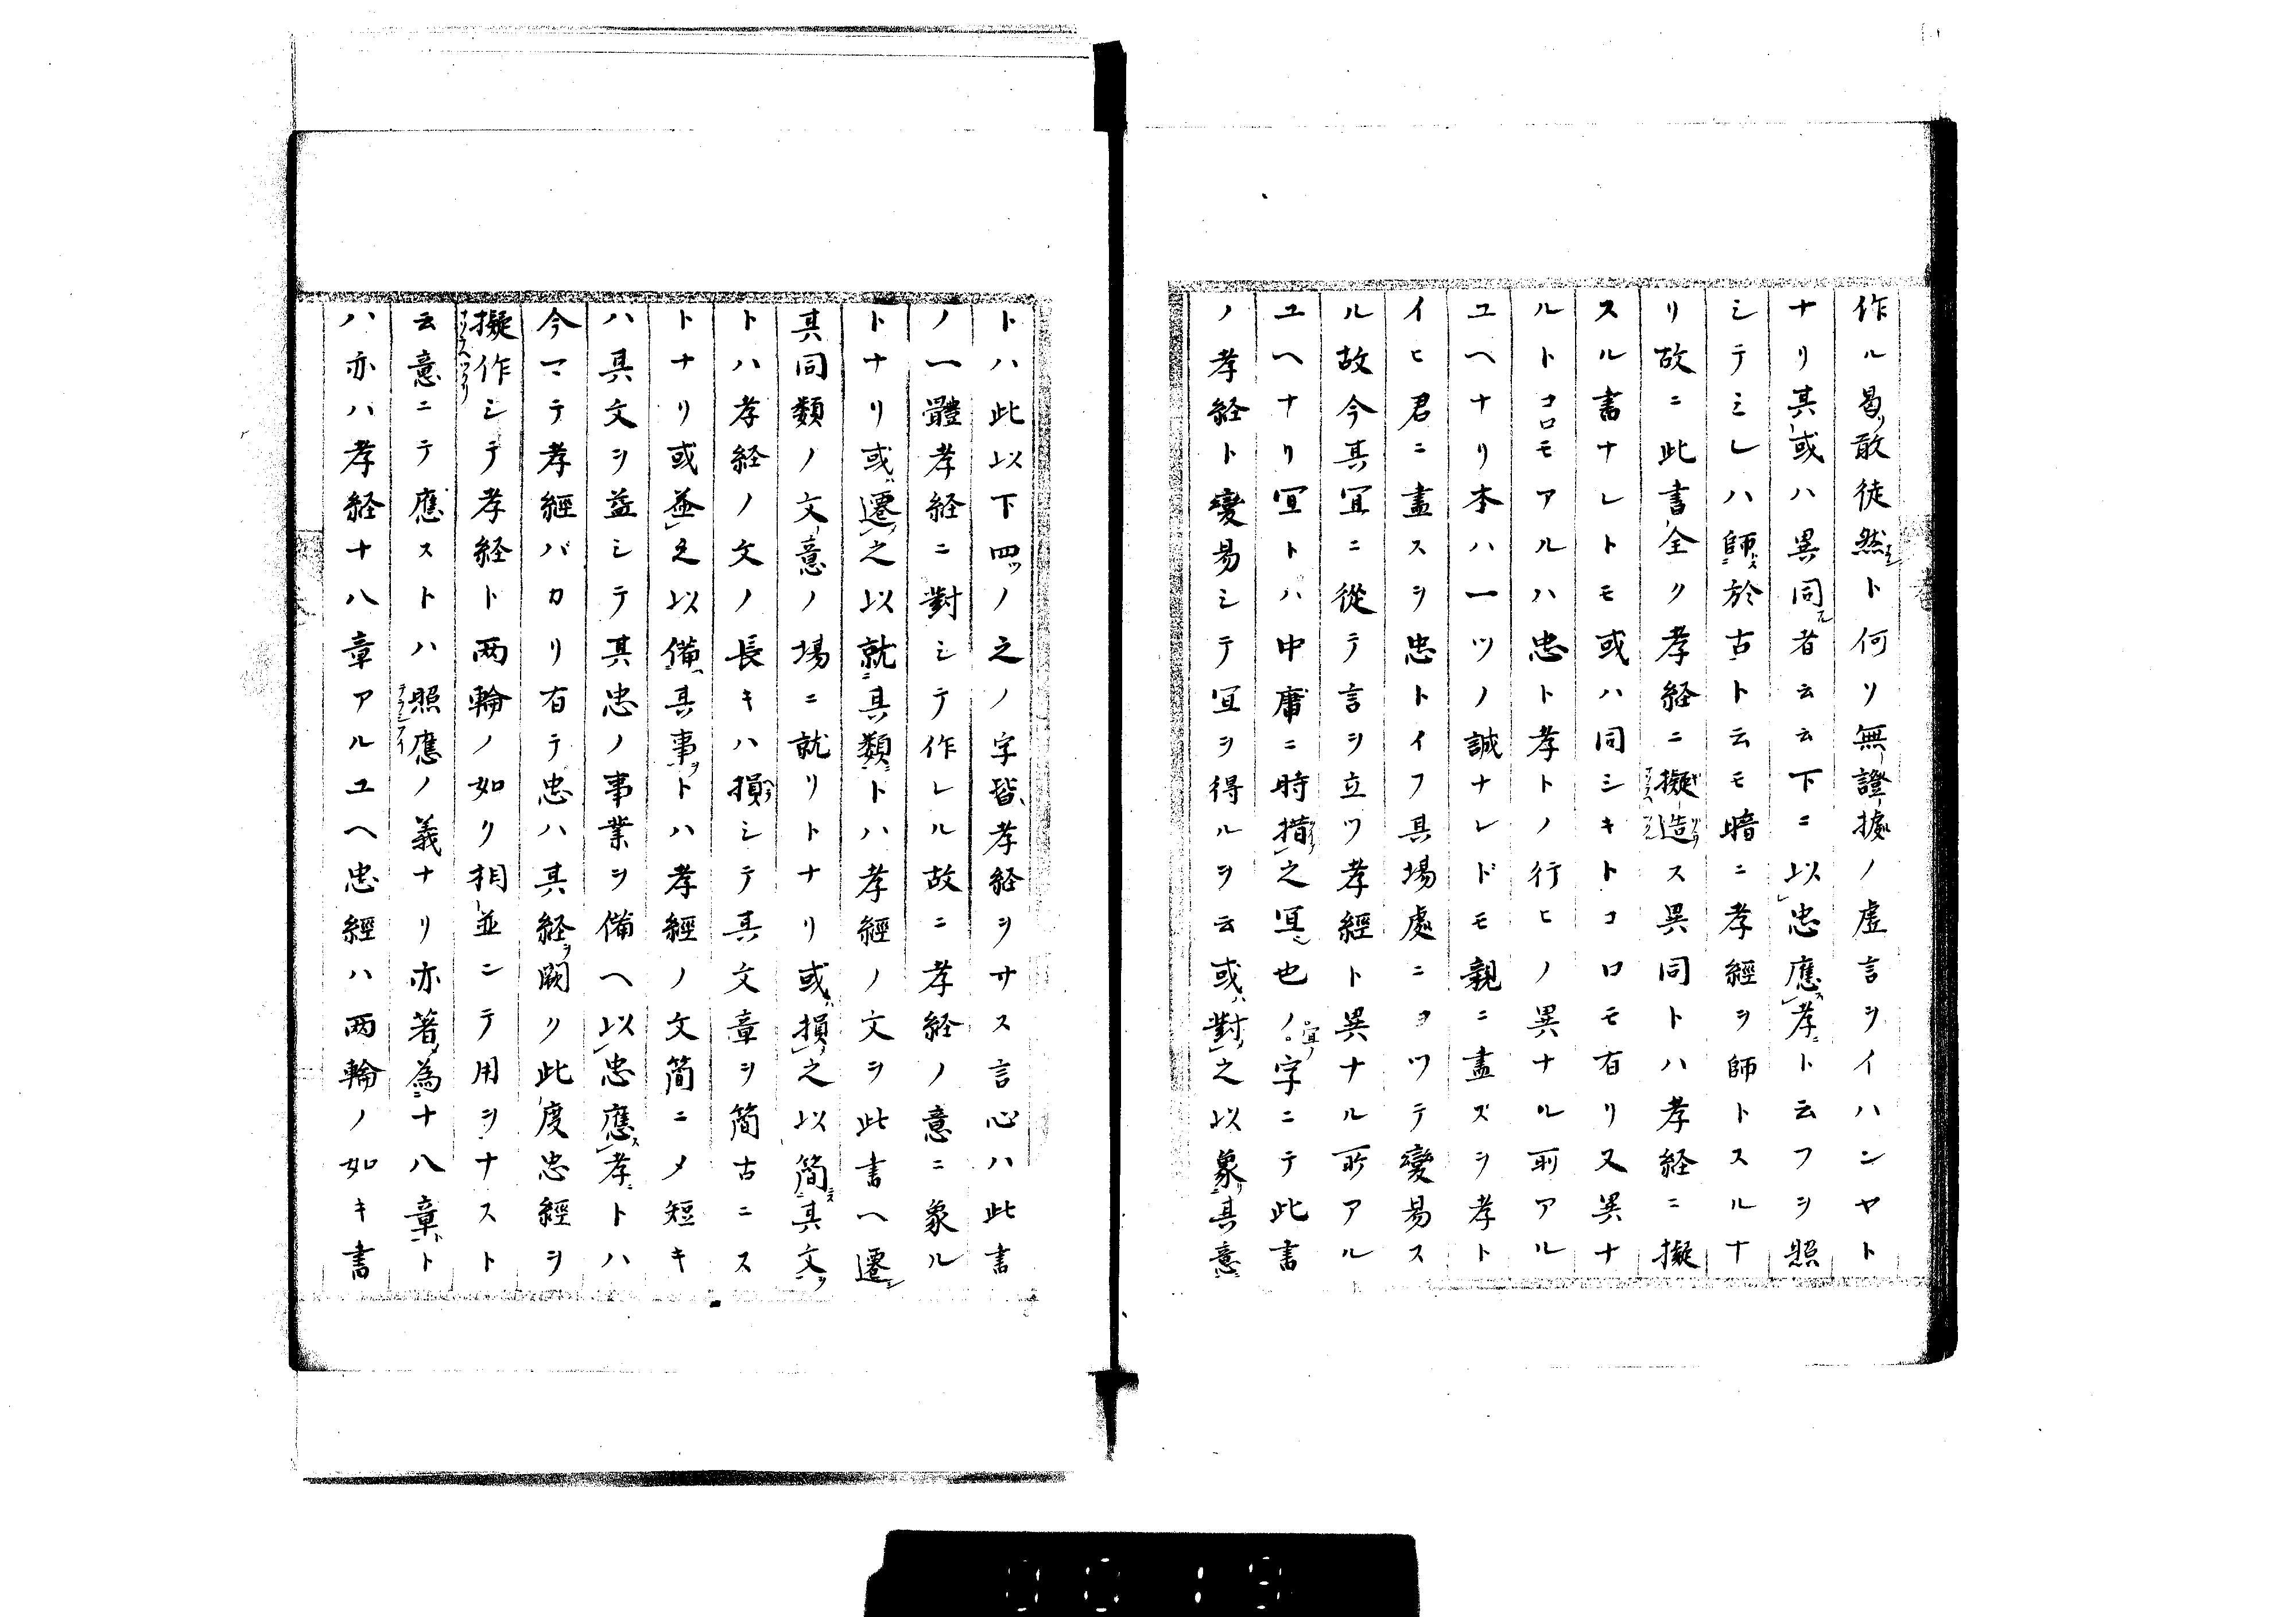 作ル曷敢徒然ト何ソ無證據ノ虚言ヲイハンヤト
ナリ其或ハ異同者云云下ニ以忠應孝ト云フヲ照
シテミレハ師於古ト云モ暗ニ孝經ヲ師トスルナ
リ故ニ此書全ク孝経ニ擬造ス異同トハ孝経ニ擬
スル書ナレトモ或ハ同シキトコロモ有リ又異ナ
ルトコロモアルハ忠ト孝トノ行ヒノ異ナル所アル
ユヘナリ本ハ一ツノ誠ナレドモ親ニ盡ズヲ孝ト
イヒ君ニ盡スヲ忠トイフ其場處ニヨツテ變易ス
ル故今其宜ニ從テ言ヲ立ツ孝經ト異ナル所アル
ユヘナリ宜トハ中庸ニ時措之宜也ノ宜ノ字ニテ此書
ノ孝経ト變易シテ宜ヲ得ルヲ云或對之以象其意
トハ此以下四ツノ之ノ字皆孝経ヲサス言心ハ此書
ノ一體孝経ニ對シテ作レル故ニ孝経ノ意ニ象ル
トナリ或遷之以就其類トハ孝經ノ文ヲ此書ヘ遷シ
其同類ノ文意ノ場ニ就リトナリ或損之以簡其文
トハ孝経ノ文ノ長キハ損シテ其文章ヲ簡古ニス
トナリ或益之以備其事トハ孝經ノ文簡ニメ短キ
ハ其文ヲ益シテ其忠ノ事業ヲ備ヘ以忠應孝トハ
今マテ孝經バカリ有テ忠ハ其経ヲ闕ク此度忠經ヲ
擬作シテ孝経ト両輪ノ如ク相並ンテ用ヲナスト
云意ニテ應ストハ照應ノ義ナリ亦著為十八章ト
ハ亦ハ孝経十八章アルユヘ忠經ハ両輪ノ如キ書